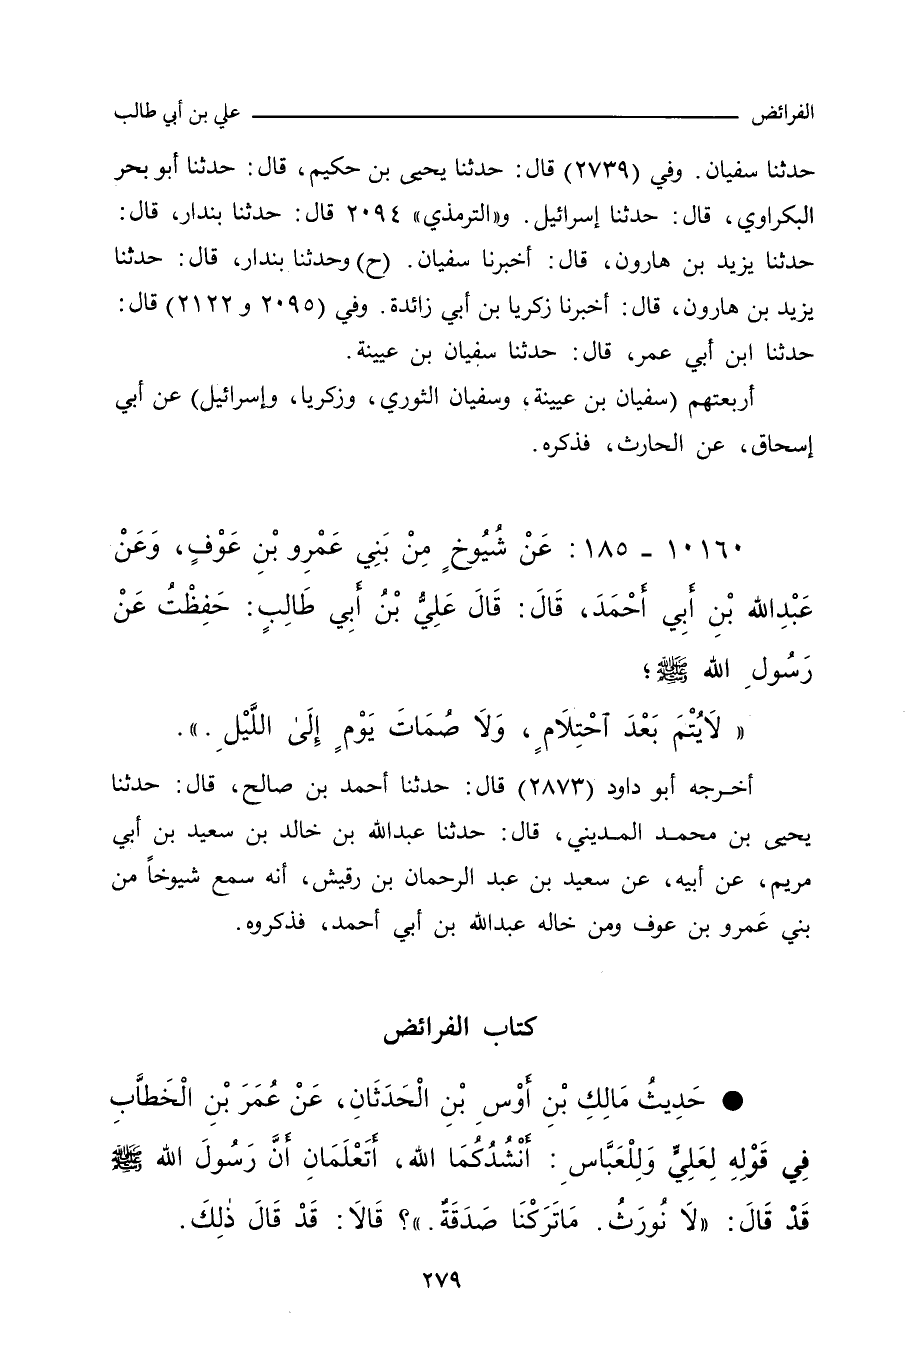 الفرائض ــــــــــــــــــــ علي بن أبي طالب
حدثنا سفيان. وفي (٢٧٣٩) قال: حدثنا يحيى بن حكيم، قال: حدثنا أبو بحر
البكراوي، قال: حدثنا إسرائيل. و«الترمذي» ٢٠٩٤ قال: حدثنا بندار، قال:
حدثنا يزيد بن هارون، قال: أخبرنا سفيان. (ح) وحدثنا بندار، قال: حدثنا
يزيد بن هارون، قال: أخبرنا زكريا بن أبي زائدة. وفي (٢٠٩٥ و ٢١٢٢) قال:
حدثنا ابن أبي عمر، قال: حدثنا سفيان بن عيينة.
أربعتهم (سفيان بن عيينة، وسفيان الثوري، وزكريا، وإسرائيل) عن أبي
إسحاق، عن الحارث، فذكره.
١٠١٦٠ - ١٨٥: عَنْ شُيُوخٍ مِنْ بَنِي عَمْرِو بْنِ عَوْفٍ، وَعَنْ
عَبْدِالله بْنِ أَبِي أَحْمَدَ، قَالَ: قَالَ عَلِيُّ بْنُ أَبِي طَالِبٍ: حَفِظْتُ عَنْ
رَسُولِ الله ﷺ؛
« لَايُتْمَ بَعْدَ آحْتِلَامٍ، وَلَا صُمَاتَ يَوْمٍ إِلَىٰ اللَّيْلِ.».
أخرجه أبو داود (٢٨٧٣) قال: حدثنا أحمد بن صالح، قال: حدثنا
يحيى بن محمد المديني، قال: حدثنا عبدالله بن خالد بن سعيد بن أبي
مريم، عن أبيه، عن سعيد بن عبد الرحمان بن رقيش، أنه سمع شيوخاً من
بني عَمرو بن عوف ومن خاله عبدالله بن أبي أحمد، فذكروه.
كتاب الفرائض
● حَدِيثُ مَالِكِ بْنِ أَوْسِ بْنِ الْحَدَثَانِ، عَنْ عُمَرَ بْنِ الْخَطَّابِ
فِي قَوْلِهِ لِعَلِيٍّ وَلِلْعَبَّاسِ: أَنْشُدُكُمَا الله، أَتَعْلَمَانِ أَنَّ رَسُولَ الله ﷺ
قَدْ قَالَ: «لَا نُورَثُ. مَاتَرَكْنَا صَدَقَةٌ.»؟ قَالَا: قَدْ قَالَ ذٰلِكَ.
٢٧٩